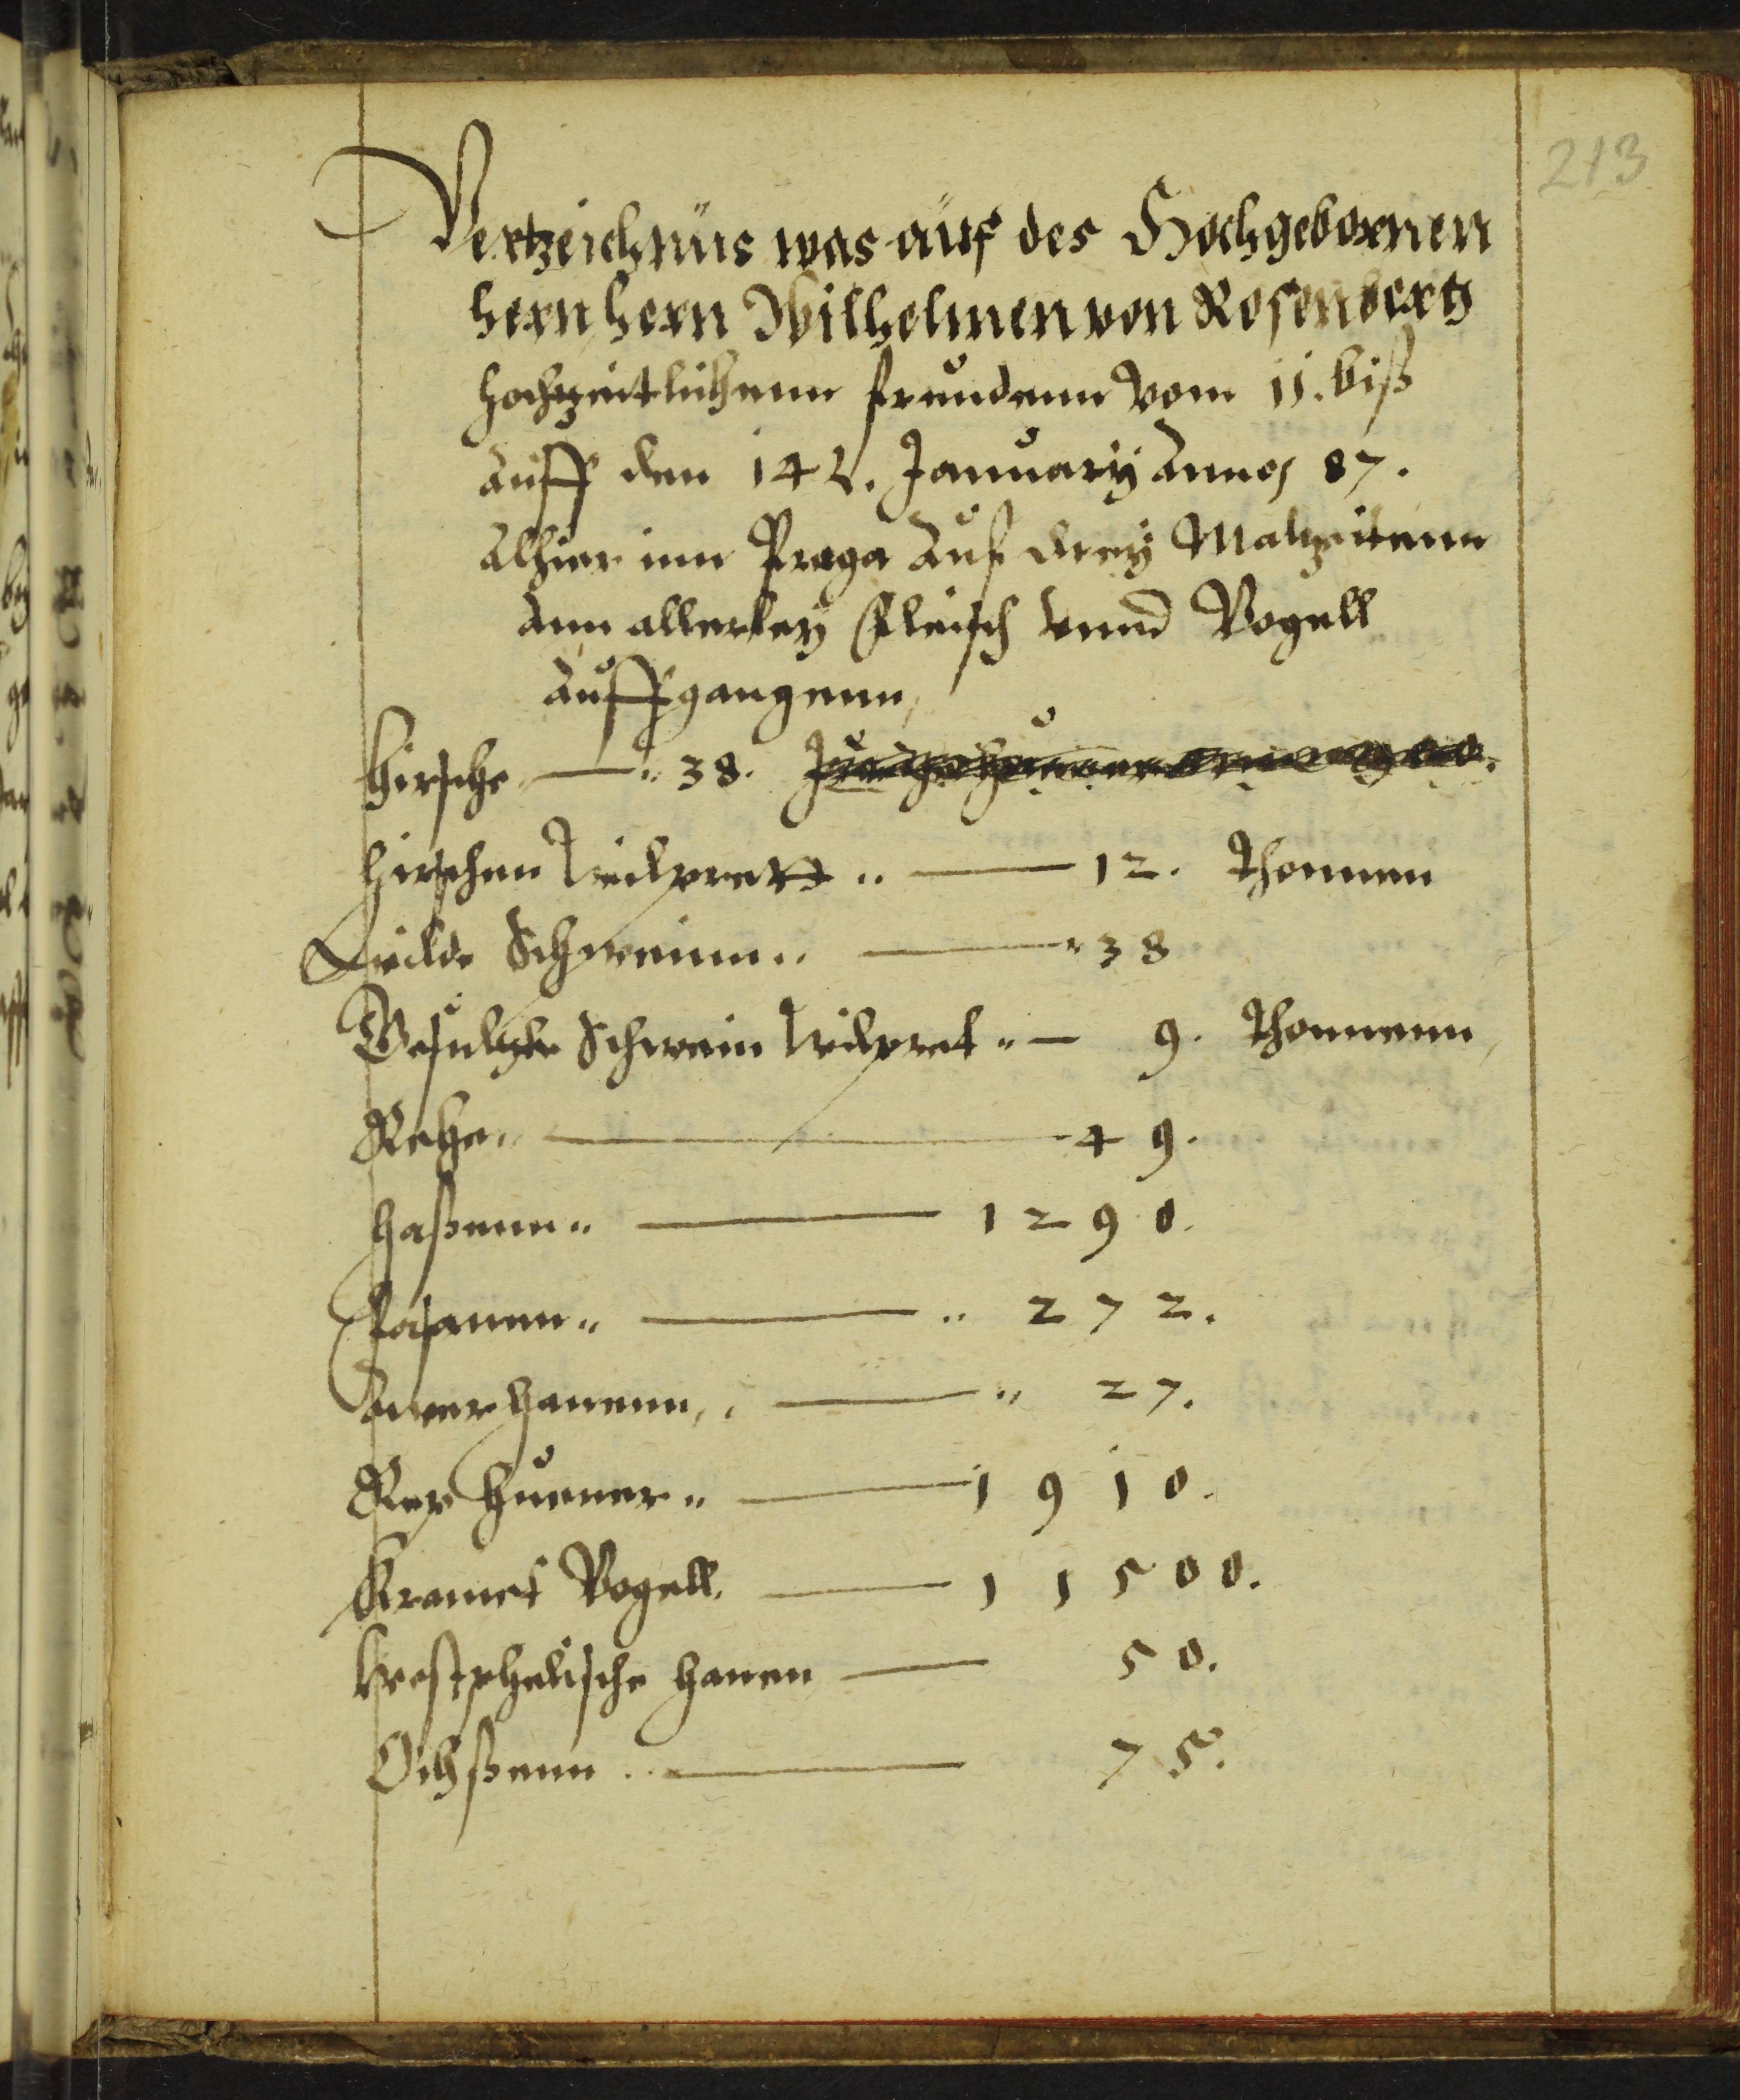 213
Vertzeichnüs was auf des Hochgebornen
hern hern Wilhelmen von Rosenbertz
hochzeitlichenn freudenn vom 11. biß
auff den 14 t. January Anno 87.
alhier inn Praga auf drey Maltzeitenn
ann allerley Fleisch vnnd Vogell
auffgangenn,
Hirsche — 38.
Hirschen Wildpret — 12. Thonnen
Wilde Schweinn — 38
Gesultzte Schwein Wildpret — 9. Thonnenn
Rehe — 49.
Haßenn — 1290.
Fasanen — 272.
Auerhanenn — 27.
Rephuener — 1910.
Kramet Vogell — 11500.
Westphelische Hanen — 50.
Ochßenn — 75.